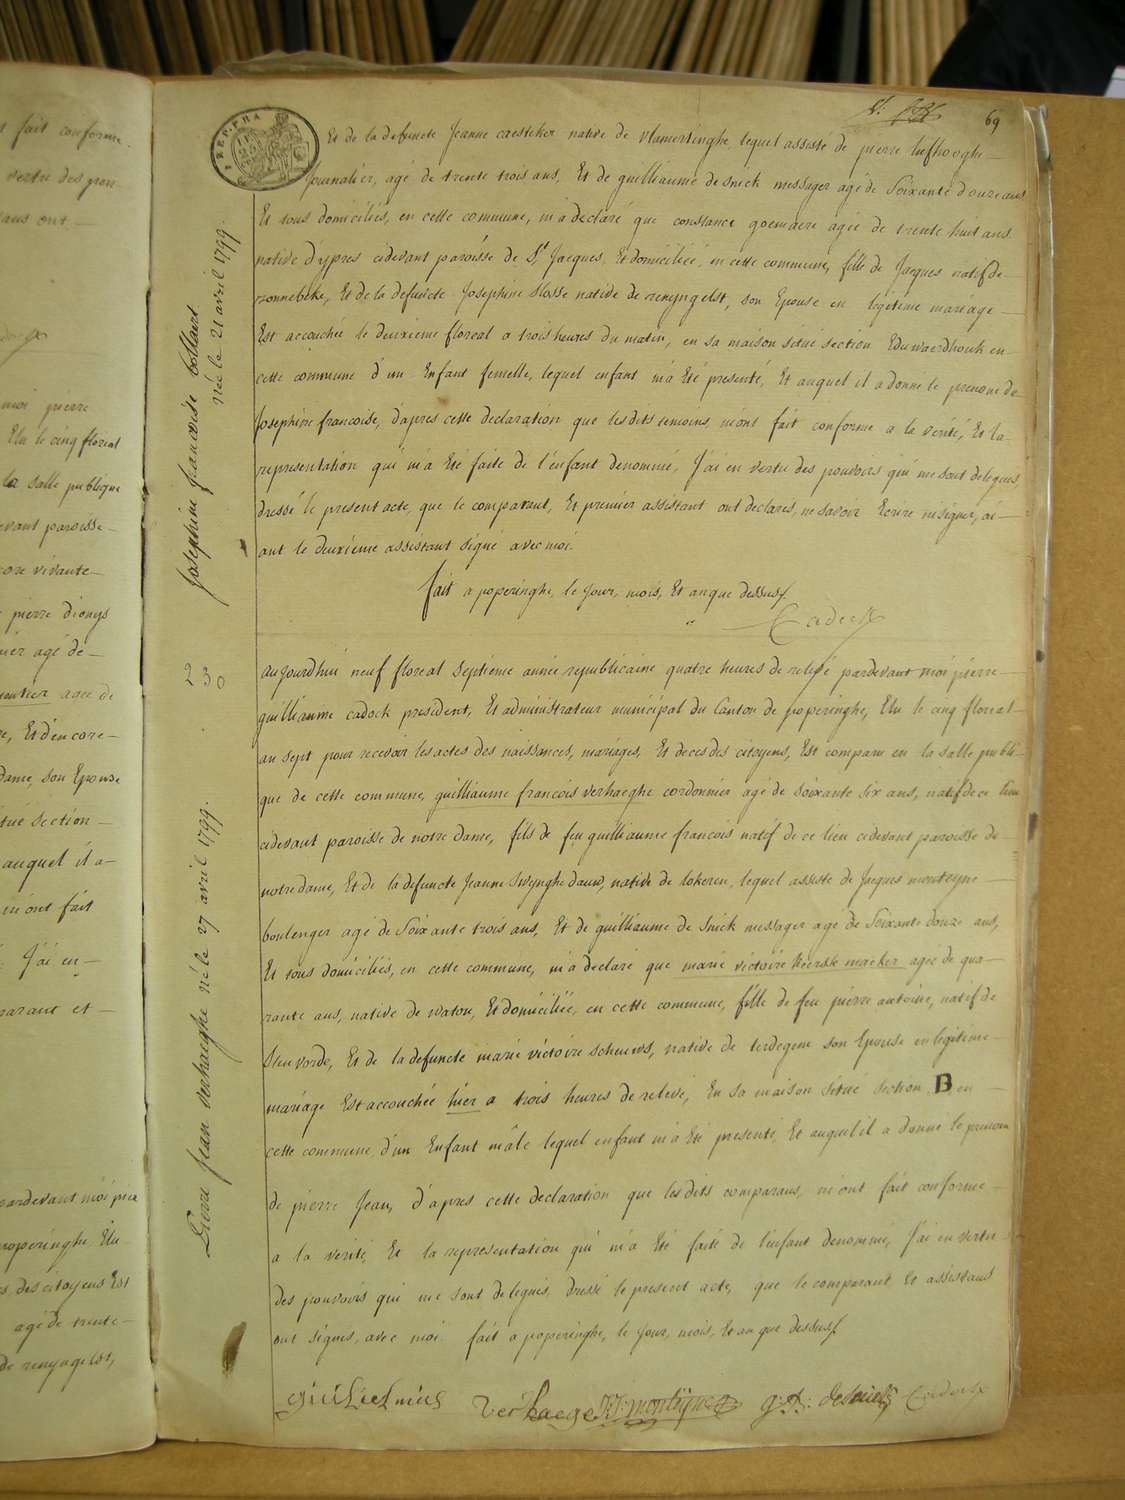 t fait conforme
vertu des pou-
ans ont —
moi pierre
Elu le cinq floreal
la salle publique
devant paroisse —
core vivante —
pierre dionys
agé de —
agée de
Et d'encore —
dame, son Epouse
situé section —
auquel il a —
m'ont fait
J'ai en —
parant et —
pardevant moi pier
poperinghe, Elu
s des citoyens Est
agé de trente —
de renyngelst,
69
Et de la defuncte Jeanne caesteker native de vlamertinghe, lequel assisté de pierre liefhooghe —
Journaliér, agé de trente trois ans, Et de guilliaume de snick messager agé de Soixante douze ans
Et tous domiciliés, en cette commune, m'a declaré que constance goemaere agée de trente huit ans
native d'ypres cidevant paroisse de St Jacques, Et domiciliée, en cette commune, fille de Jacques natif de
zonnebeke, Et de la defuncte Josephine Slosse native de renyngelst, son Epouse en legitime mariage —
Est accouchée le deuxieme floreal a trois heures du matin, en sa maison situé section Eduwaerdhouk en
cette commune d'un Enfant femelle, lequel enfant m'a Eté presenté, Et auquel il a donné le prenom de
Josephine francoise, d'apres cette declaration que les dits temoins, m'ont fait conforme a la verité, Et la
representation qui m'a Eté faite de l'enfant denommé, J'ai en vertu des pouvoirs qui me sont delegues
dressé le present acte, que le comparant, Et premier assistant ont declarés, ne savoir Ecrire ni signer, ai-
ant le deuxieme assistant signé avec moi.
fait a poperinghe, le Jour, mois, Et an que dessus
Cadock
Josephine francoise Collaert
née le 21 avril 1799.
230
Aujourdhui neuf floreal septieme année republicaine quatre heures de relevé pardevant moi pierre —
guilliaume cadock president, Et administrateur municipal du Canton de poperinghe, Elu le cinq floreal
an sept pour recevoir les actes des naissances, mariages, Et deces des citoyens, Est comparu en la salle publi-
que de cette commune, guilliaume francois verhaeghe cordonnier agé de soixante six ans, natif de ce lieu
cidevant paroisse de notre dame, fils de feu guilliaume francois natif de ce lieu cidevant paroisse de
notre dame, Et de la defuncte Jeanne Swynghedauw, native de lokeren, lequel assisté de Jacques monteyne —
boulenger agé de Soixante trois ans, Et de guilliaume de Snick messager agé de Soixante douze ans,
Et tous domiciliés, en cette commune, m'a declaré que marie victoire keerskemaeker agée de qua-
rante ans, native de watou, Et domiciliée, en cette commune, fille de feu pierre antoine, natif de
Steuvorde, Et de la defuncte marie victoire scheuws, native de terdegem son Epouse en legitime —
mariage Est accouchée hier a trois heures de relevé, En sa maison situé section B en —
cette commune, d'un Enfant mâle lequel enfant m'a Eté presenté, Et auquel il a donné le prenom
de pierre Jean, d'apres cette declaration que les dits comparans, m'ont fait conforme —
a la verité, Et la representation qui m'a Eté faite de l'enfant denommé, J'ai en vertu
des pouvoirs qui me sont delegués, dressé le present acte, que le comparant Et assistans
ont signés, avec moi. fait a poperinghe, le Jour, mois, Et an que dessus
Pierre Jean verhaeghe né le 27 avril 1799.
guilielmus verhaege J: monteyne g: d: desnick Cadock